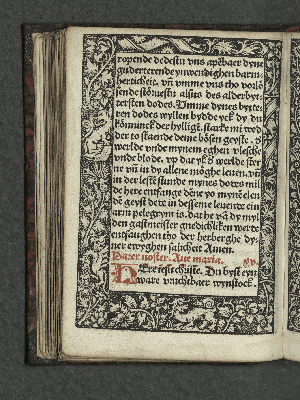 ropende dedestu vns apēbaer dyne
guderterende ynwendighen barm
herticheit. vñ vmme vns tho vorlö
sende störuestu alsus des alderbyt
tersten dodes. Vmme dynes bytte
ren dodes wyllen bydde yck dy du
könninck der hylligē. starke mi wed
der to staende deme bösen geyste. d̕
werlde vnde mynem eghen vlessche
vnde blode. vp dat yk d̕ werlde ster
ue vñ in dy allene möghe leuen. vñ
in der lestē stunde mynes dotes wil
de here entfange dēne yo mynē elen
dē geyst dere in desseme leuende ein
arm pelegrym is. dat he vā dy myl
den gastmeister gnedichliken werde
entfanghen tho der herberghe dy
ner ewyghen salicheit Amen.
Pater noster. Aue maria. xv.
HEre iesu christe. Du byst eyn
ware vruchtbaer wynstock.